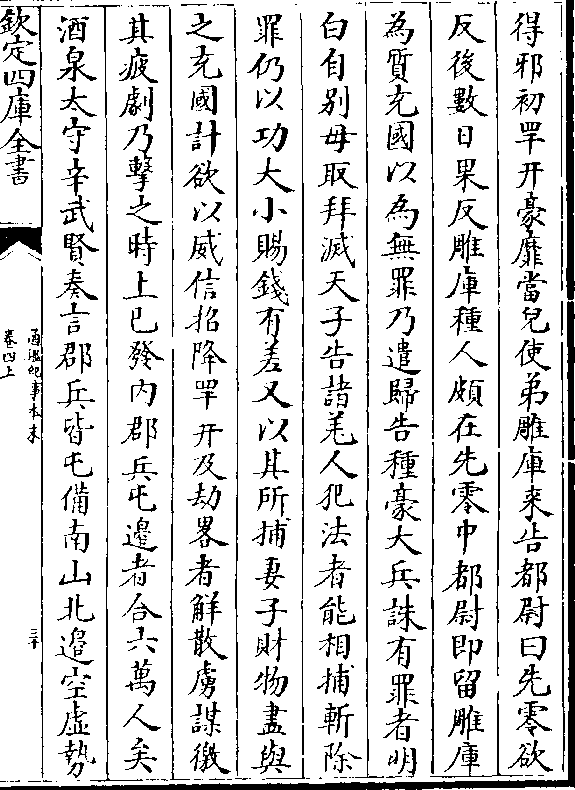 得邪初䍐幵豪靡當兒使弟雕庫來告都尉曰先零欲
反後數日果反雕庫種人頗在先零中都尉即留雕庫
為質充國以為無罪乃遣歸告種豪大兵誅有罪者明
白自别毋取拜滅天子告諸羌人犯法者能相捕斬除
罪仍以功大小賜錢有差又以其所捕妻子財物盡與
之充國計欲以威信招降䍐幵及劫畧者解散虜謀徼
其疲劇乃擊之時上已發内郡兵屯邉者合六萬人矣
酒泉太守辛武賢奏言郡兵皆屯備南山北邉空虛勢
欽定四庫全書
通鑑紀事本末
卷四上
三十